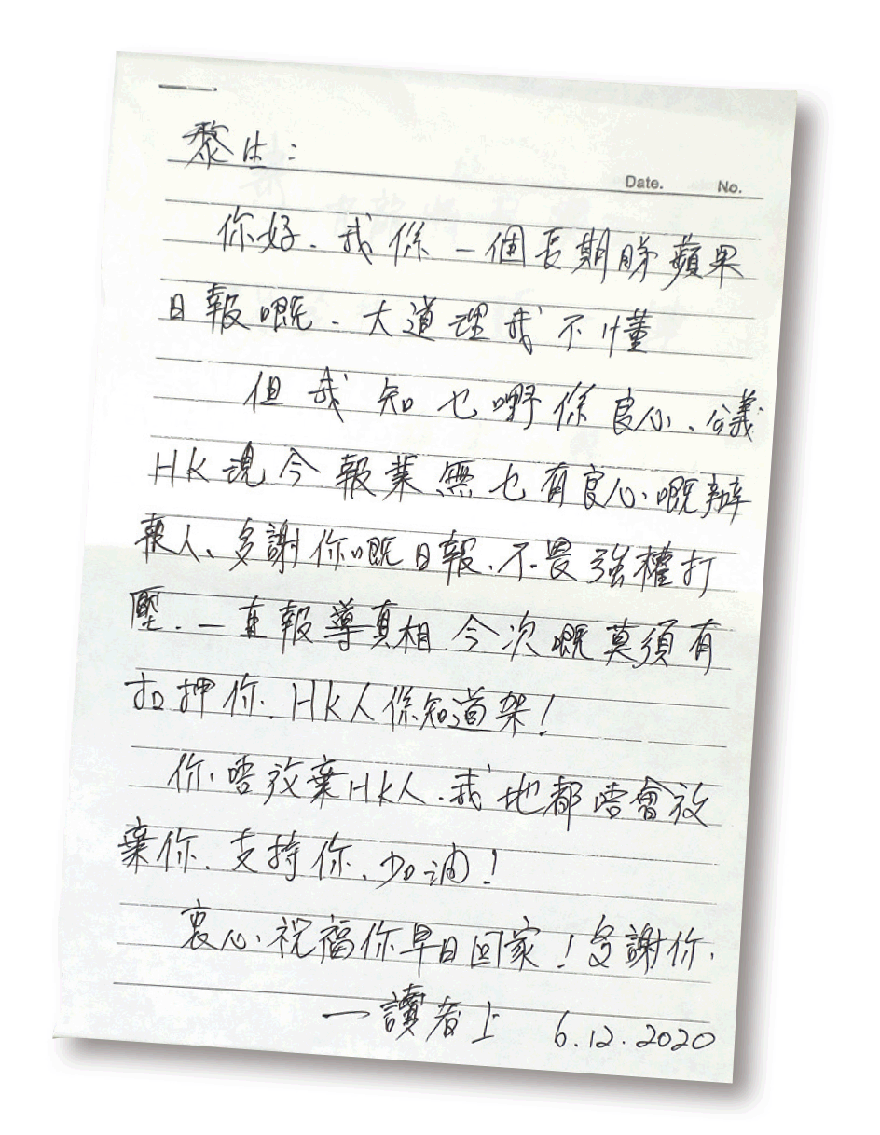 黎生：
Date. No.
你好、我係一個長期睇蘋果
日報嘅、大道理我不懂
但我知乜嘢係良心、公義
HK現今報業無乜有良心嘅辦
報人、多謝你嘅日報、不畏強權打
壓、一直報導真相 今次嘅莫須有
扣押你、HK人係知道架！
你唔放棄HK人、我地都唔會放
棄你、支持你、加油！
衷心祝福你早日回家！多謝你、
一讀者上 6.12.2020